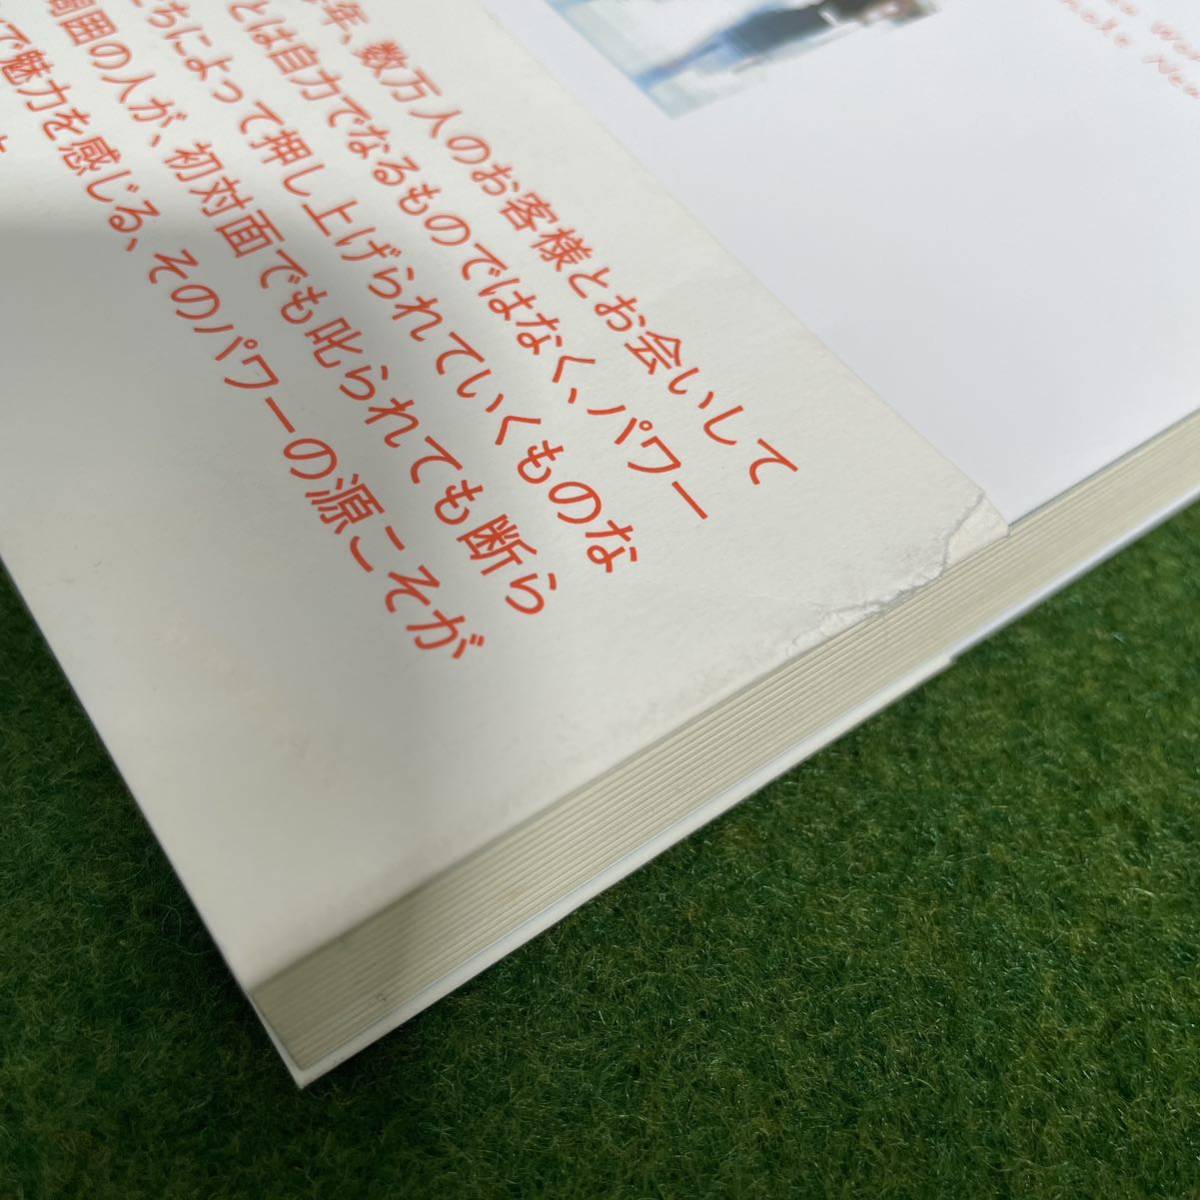 年、数万人のお客様とお会いして
とは自力でなるものではなく、パワー
ちによって押し上げられていくものな
周囲の人が、初対面でも叱られても断ら
で魅力を感じる、そのパワーの源こそが